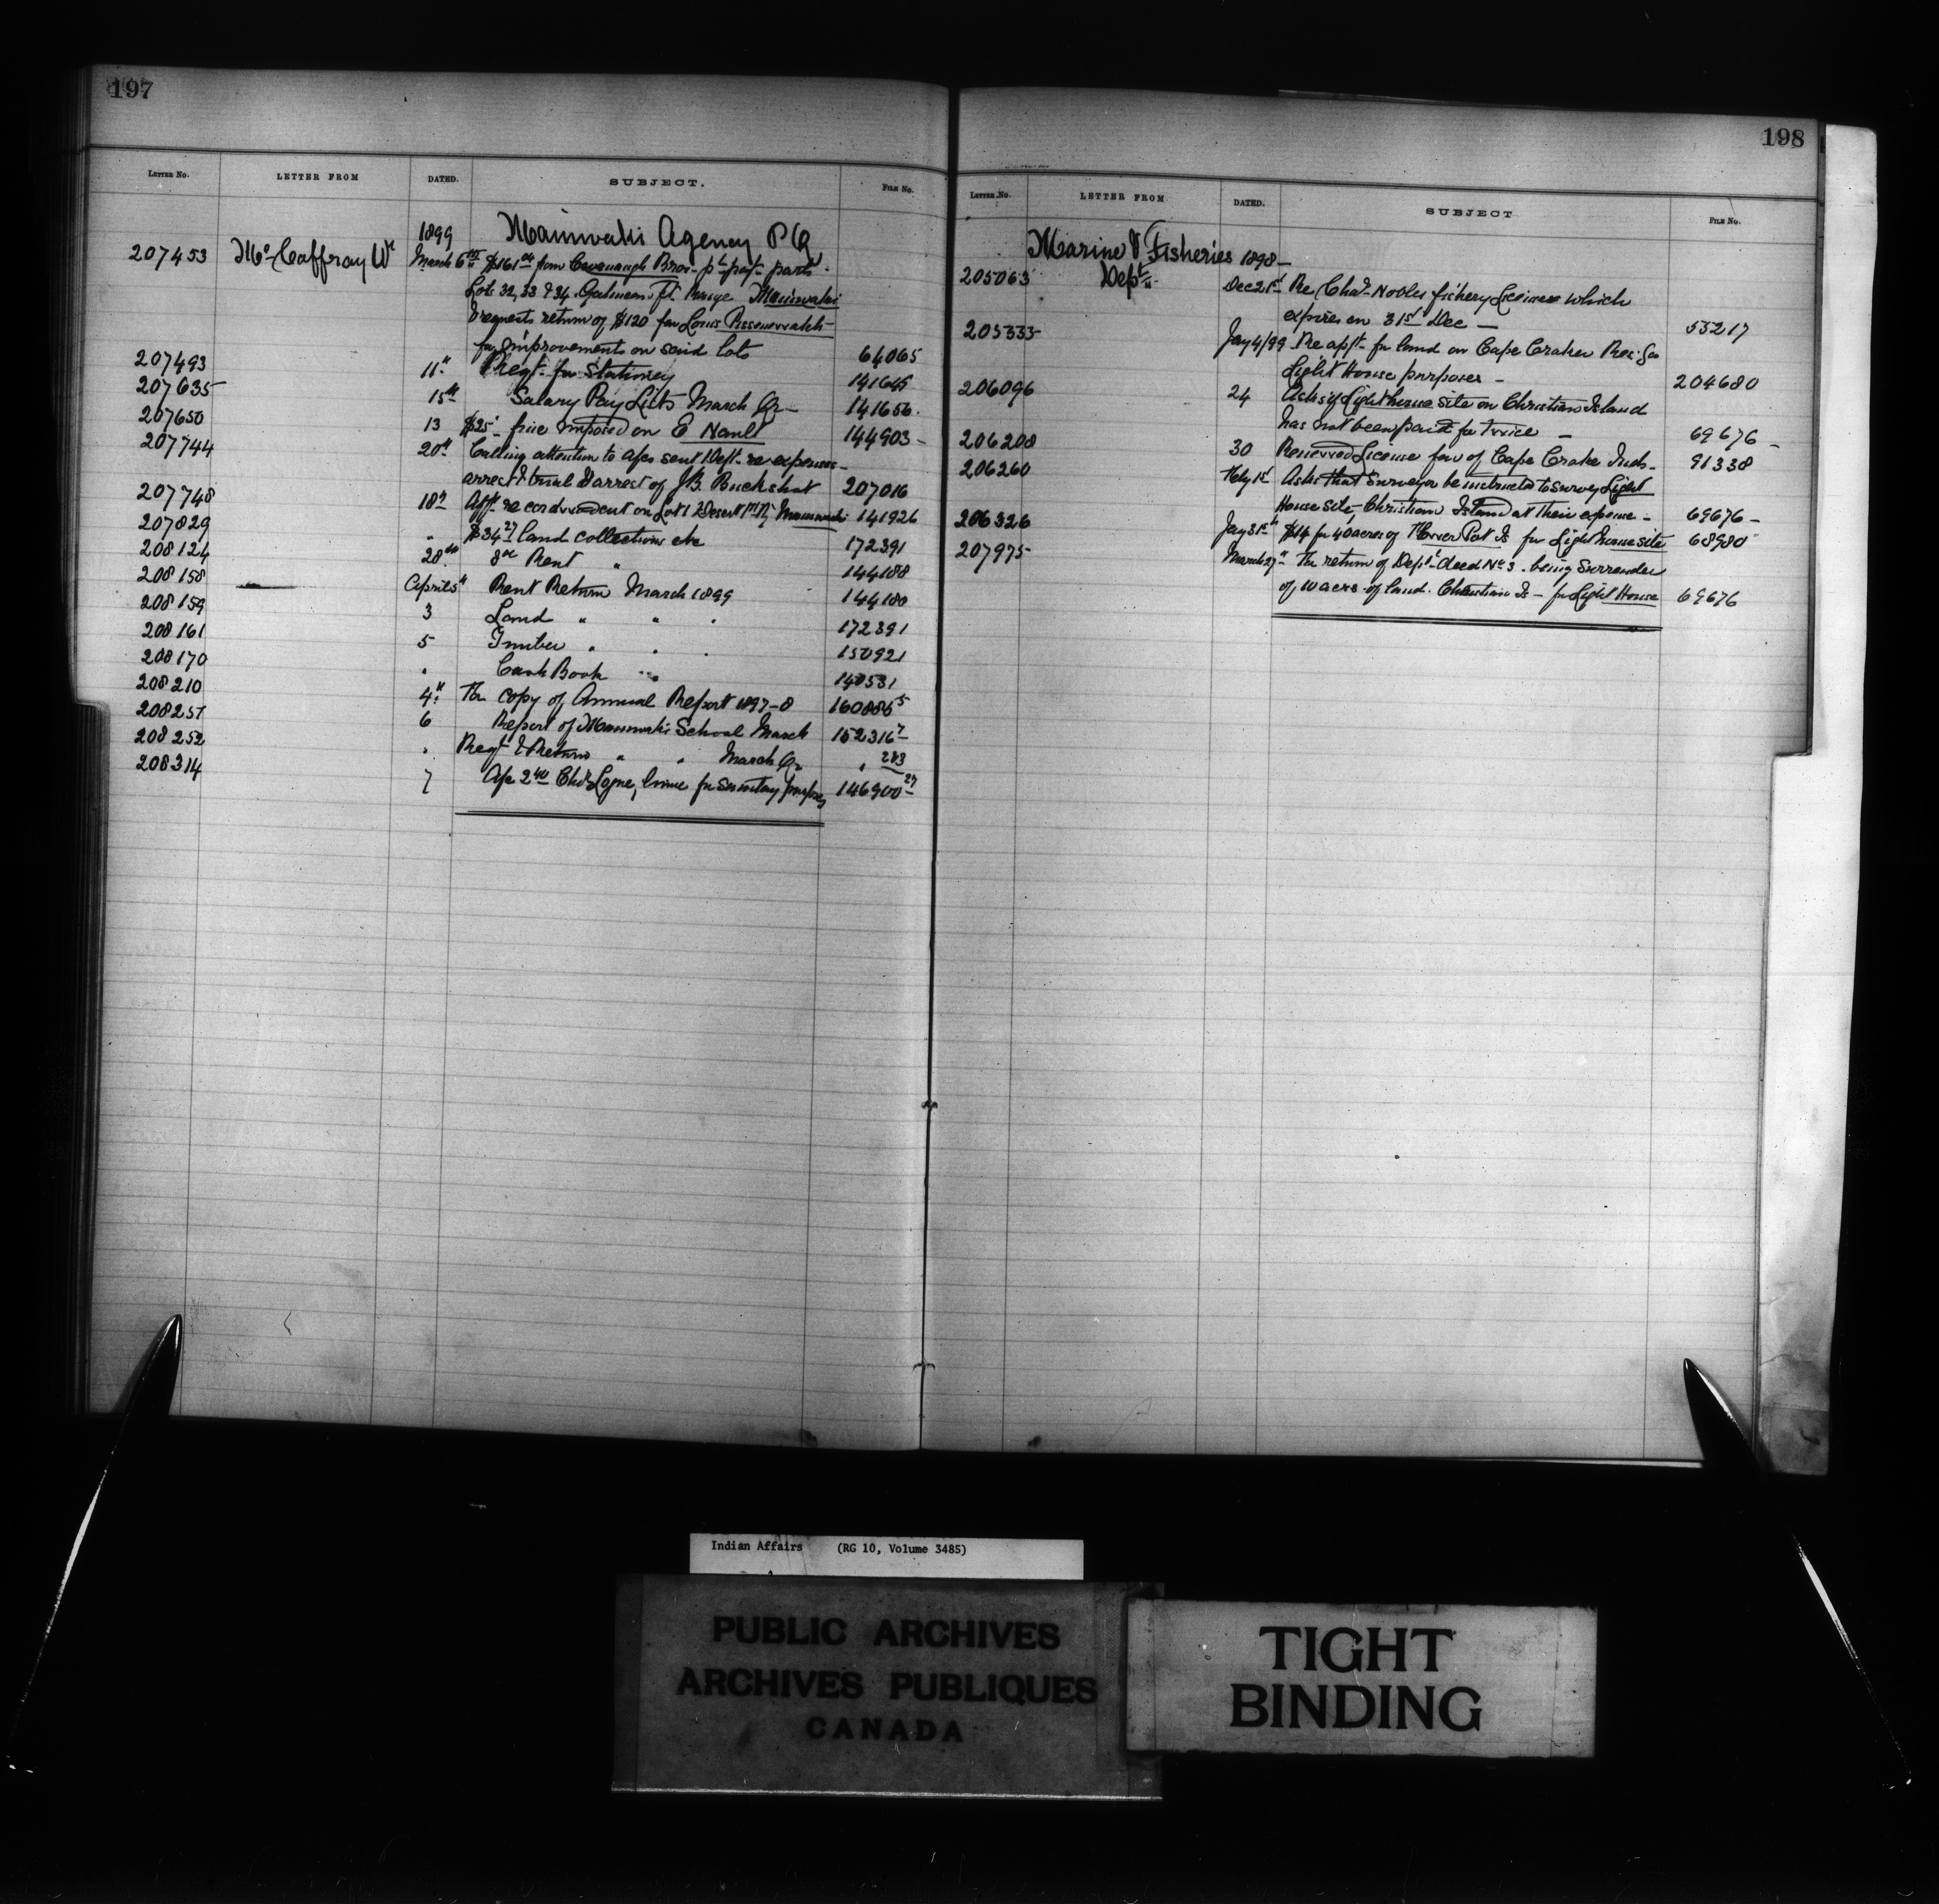 197
LETTER NO. LETTER FROM DATED. SUBJECT. FILE NO.
1899 Maniwaki Agency P Q
207453 McCaffray W March 6th $161.04 from Cavanaugh Bros pt pat parts
Lots 32, 33 & 34 Gatineau Ft Range Maniwaki
requests return of $120 for Louis
for improvements on said lots 64065
207493 11th Reqt for Stationery 141645
207635 15th Salary Pay Lists March Qr 141656
207650 13 $25 fine imposed on E Nault 144903
207744 20th Calling attention to a/cs sent Dept re expenses
arrest & trial & arrest of J.B. Buckshot 207016
207748 18th Afft re on Lot 1 Desert Maniwaki 141926
207829 " $34.27 land collections etc 172391
208124 28th 8.00 Rent " 144188
208158 April 5th Rent Return March 1899 144180
208159 3 Land " " " 172391
208161 5 Timber " " " 150921
208170 " Cash Book " " 148531
208210 4th For copy of Annual Report 1897-8 160886 5
208251 6 Report of Maniwaki School March 152316 7
208252 " Reqt & Return " " March Qr " 283
208314 7 A/c 2.40 Chas Logue, lime for sanitary purposes 146900 27
198
LETTER NO. LETTER FROM DATED. SUBJECT FILE NO.
Marine & Fisheries 1898
205063 Dept Dec 21st Re Chas Nobles fishery Licenses which
expires on 31st Dec 53217
205335 Jay 4/99 Re appt for land on Cape Croker Res. for
Light House purposes 204680
206096 24 Asks if Lighthouse site on Christian Island
has not been paid for twice 69676
206208 30 Renewed License fav of Cape Croke Inds 91338
206260 Feby 1st Asks that surveyor be instructed to survey Light
House site, Christian Island at their expense 69676
206326 Jay 31st $14 for 40 acres of Is for Light house site 68980
207975 March 27th The return of Dept deed No 3. being Surrender
of 10 acres of land. Christian Is - for Light House 69676
Indian Affairs (RG 10, Volume 3485)
PUBLIC ARCHIVES
ARCHIVES PUBLIQUES
CANADA
TIGHT
BINDING